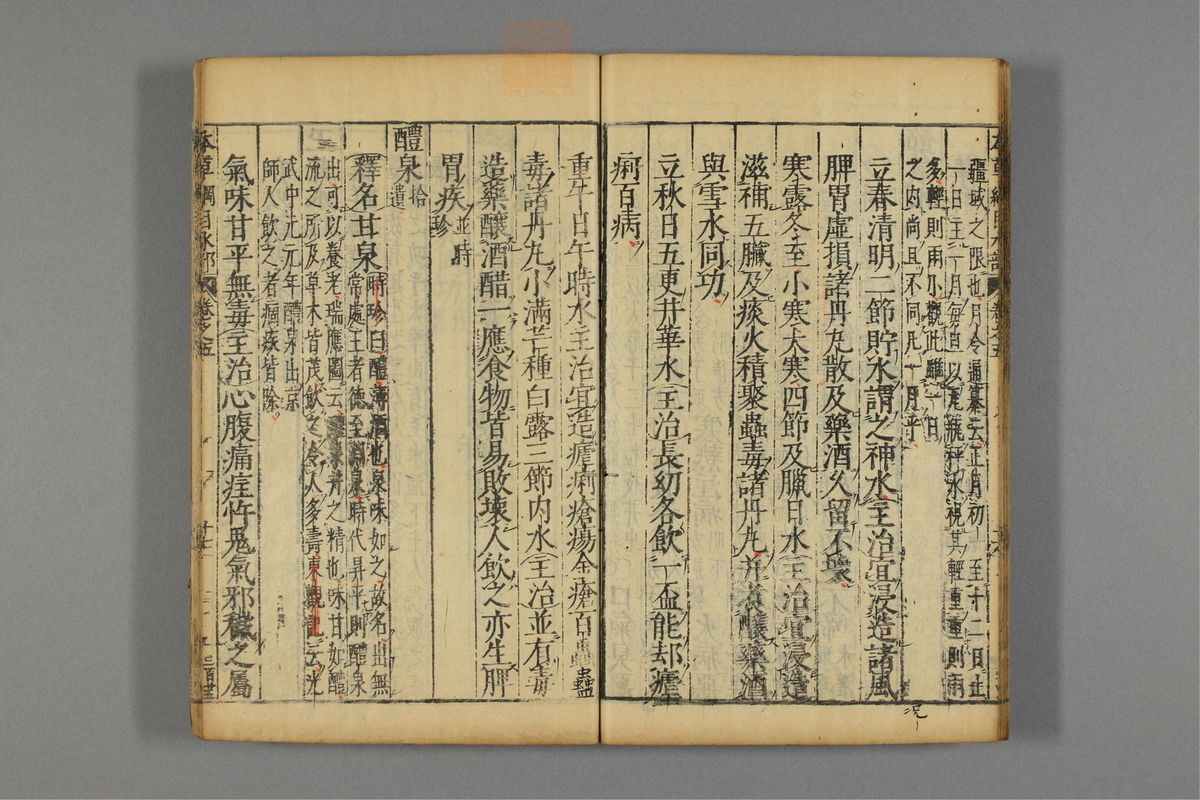 本草綱目水部 卷之五
疆域之限也月令通纂云正月初一至十二日止
一日主一月每旦以瓦瓶秤水視其輕重重則雨
多輕則雨小觀此雖一日
之內尚且不同況一月乎
立春清明二節貯水謂之神水主治宜浸造諸風
脾胃虛損諸丹丸散及藥酒久留不壞
寒露冬至小寒大寒四節及臘日水主治宜浸造
滋補五臟及痰火積聚蟲毒諸丹丸并煮釀藥酒
與雪水同功
立秋日五更井華水主治長幼各飲一盃能却瘧
痢百病
重午日午時水主治宜造瘧痢瘡瘍金瘡百蟲蠱
毒諸丹丸小滿芒種白露三節內水主治並有毒
造藥釀酒醋一應食物皆易敗壞人飲之亦生脾
胃疾並時珍
醴泉拾遺
釋名甘泉時珍曰醴薄酒也泉味如之故名出無
常處王者德至淵泉時代昇平則醴泉
出可以養老瑞應圖云醴泉水之精也味甘如醴
流之所及草木皆茂飲之令人多壽東觀記云光
武中元元年醴泉出京
師人飲之者痼疾皆除
氣味甘平無毒主治心腹痛疰忤鬼氣邪穢之屬
本草綱目水部 卷之五
況